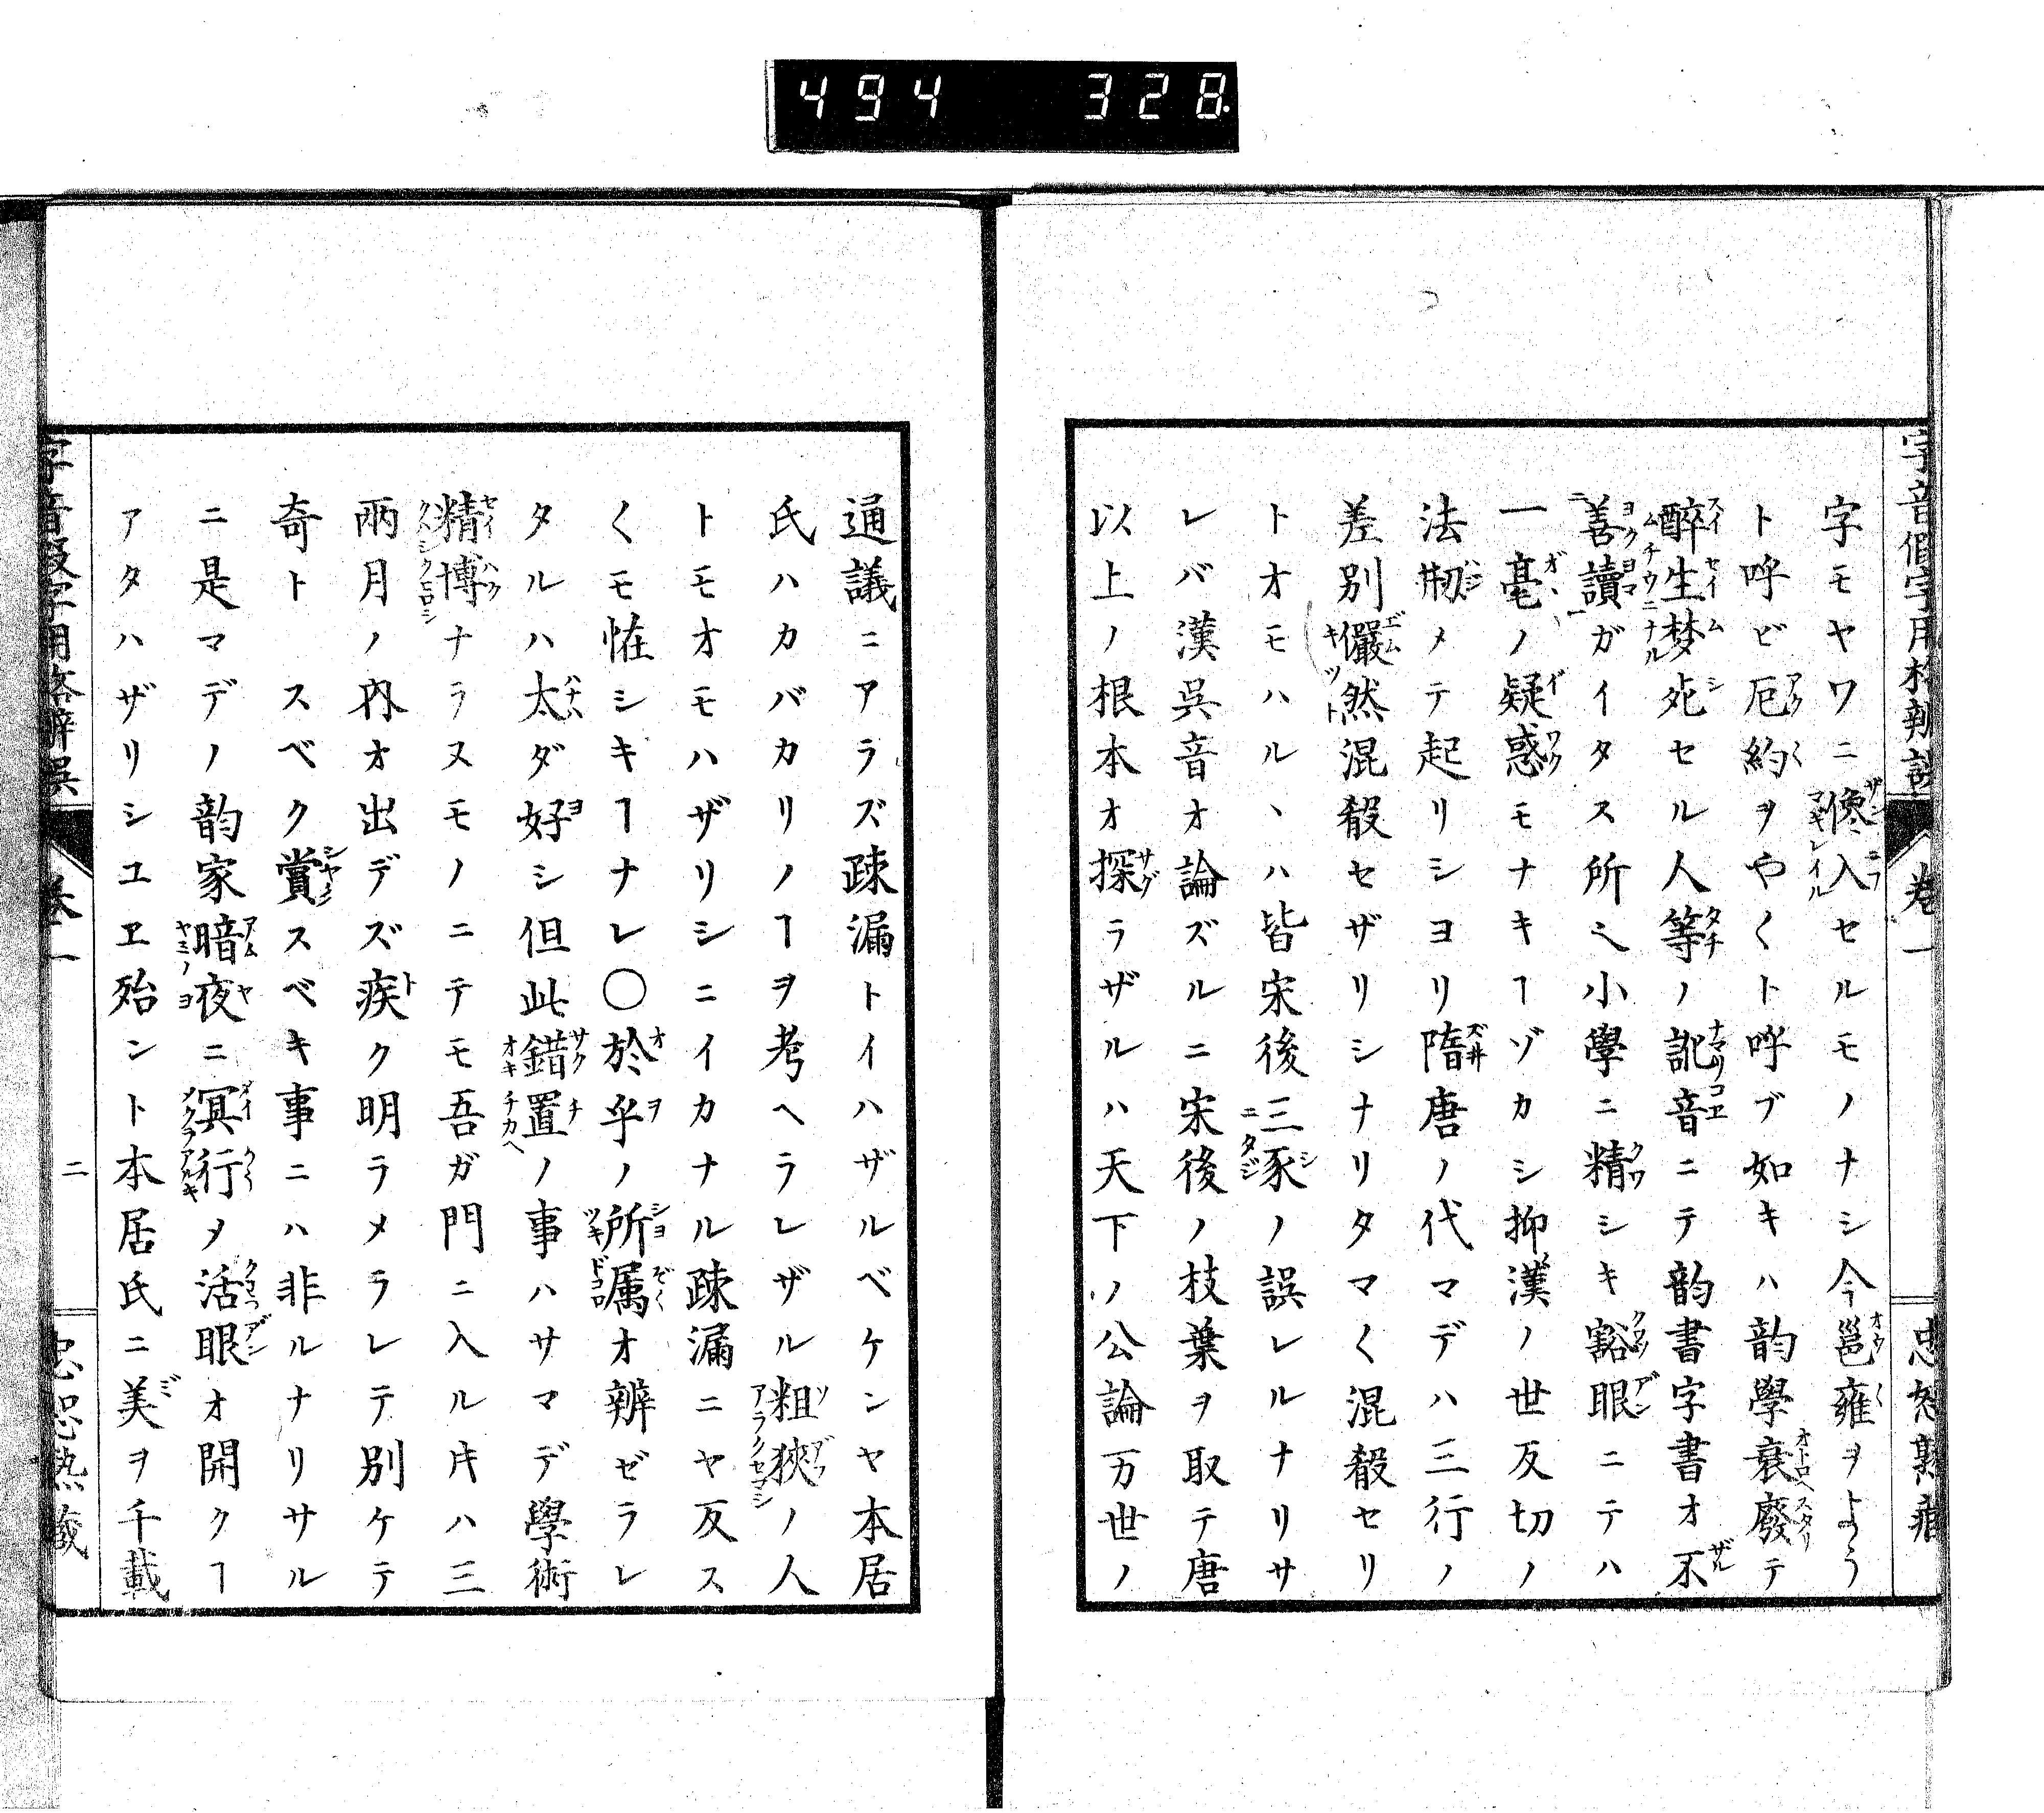 494 328
字音假字用格辨誤 卷一
字モヤワニ儳入セルモノナシ今邕雍ヲよう
ト呼ビ厄約ヲやくト呼ブ如キハ韵學衰廢テ
醉生梦死セル人等ノ訛音ニテ韵書字書オ不
善讀ガイタス所ミ小學ニ精シキ豁眼ニテハ
一毫ノ疑惑モナキヿゾカシ抑漢ノ世反切ノ
法刱メテ起リシヨリ隋唐ノ代マデハ三行ノ
差別儼然混殽セザリシナリタマく混殽セリ
トオモハルヽハ皆宋後三豕ノ誤レルナリサ
レバ漢呉音オ論ズルニ宋後ノ枝葉ヲ取テ唐
以上ノ根本オ探ラザルハ天下ノ公論万世ノ
通議ニアラズ疎漏トイハザルベケンヤ本居
氏ハカバカリノヿヲ考ヘラレザル粗狹ノ人
トモオモハザリシニイカナル疎漏ニヤ反ス
くモ恠シキヿナレ〇於乎ノ所属オ辨ゼラレ
タルハ太ダ好シ但此錯置ノ事ハサマデ學術
精博ナラヌモノニテモ吾ガ門ニ入ル𪜈ハ三
兩月ノ内オ出デズ疾ク明ラメラレテ別ケテ
奇トスベク賞スベキ事ニハ非ルナリサル
ニ是マデノ韵家暗夜ニ冥行メ活眼オ開クヿ
アタハザリシユヱ殆ント本居氏ニ美ヲ千載
字音假字用格辨誤 卷一 二